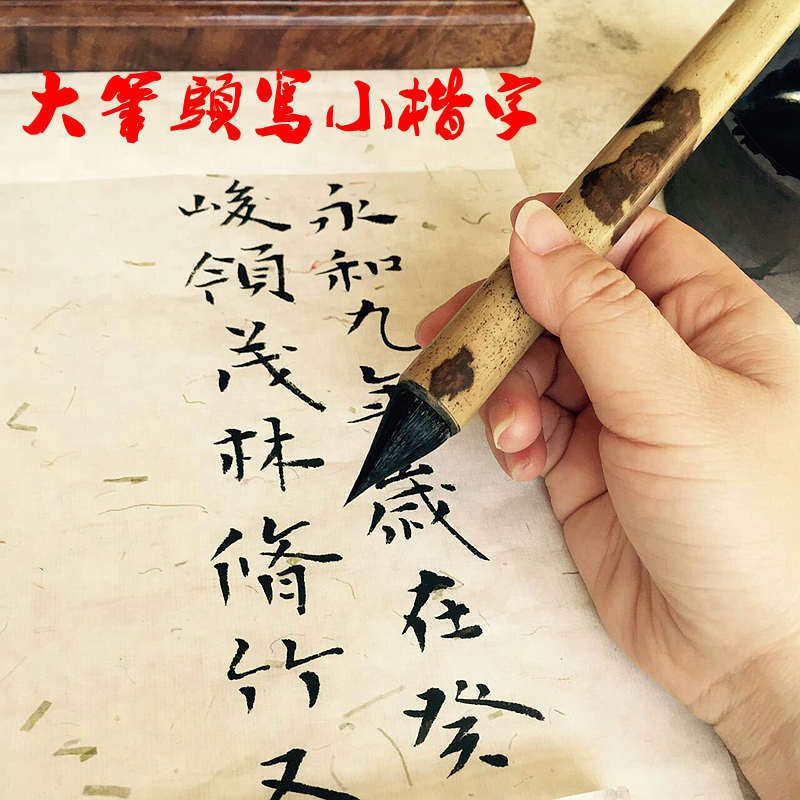 大筆頭寫小楷字
永和九年歲在癸
峻領茂林脩竹又